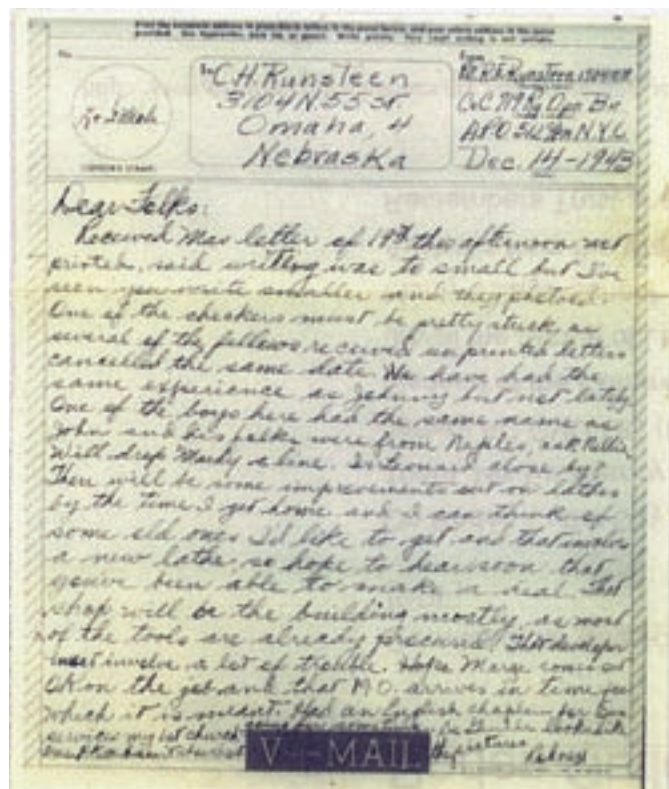 To
C.H. Runsteen
3104 N. 55 St
Omaha, 4
Nebraska
From
Co C Ry Opn Bn
APO 512 N.Y.C.
Dec. 14-1943
Dear Folks:
Received Mas letter of 19th this afternoon not
printed, said writing was to small but I've
seen you write smaller and they
One of the checkers must be pretty stuck as
several of the fellows received unprinted letters
cancelled the same date. We have had the
same experience as Johnny but not lately
One of the boys here had the same name as
John and his folks were from Naples, ask
Will drop a line. Is Leonard close by?
There will be some improvements out on lathes
by the time I get home and I can think of
some old ones I'd like to get and that involves
a new lathe so hope to hear soon that
you've been able to make a deal. That
shop will be the building mostly, as most
of the tools are already procured. That
must involve a lot of trouble. Hope Marge comes out
OK on the job and that M.O. arrives in time for
which it is meant. Had an English chaplain for
services my 1st church
pictures
V-MAIL